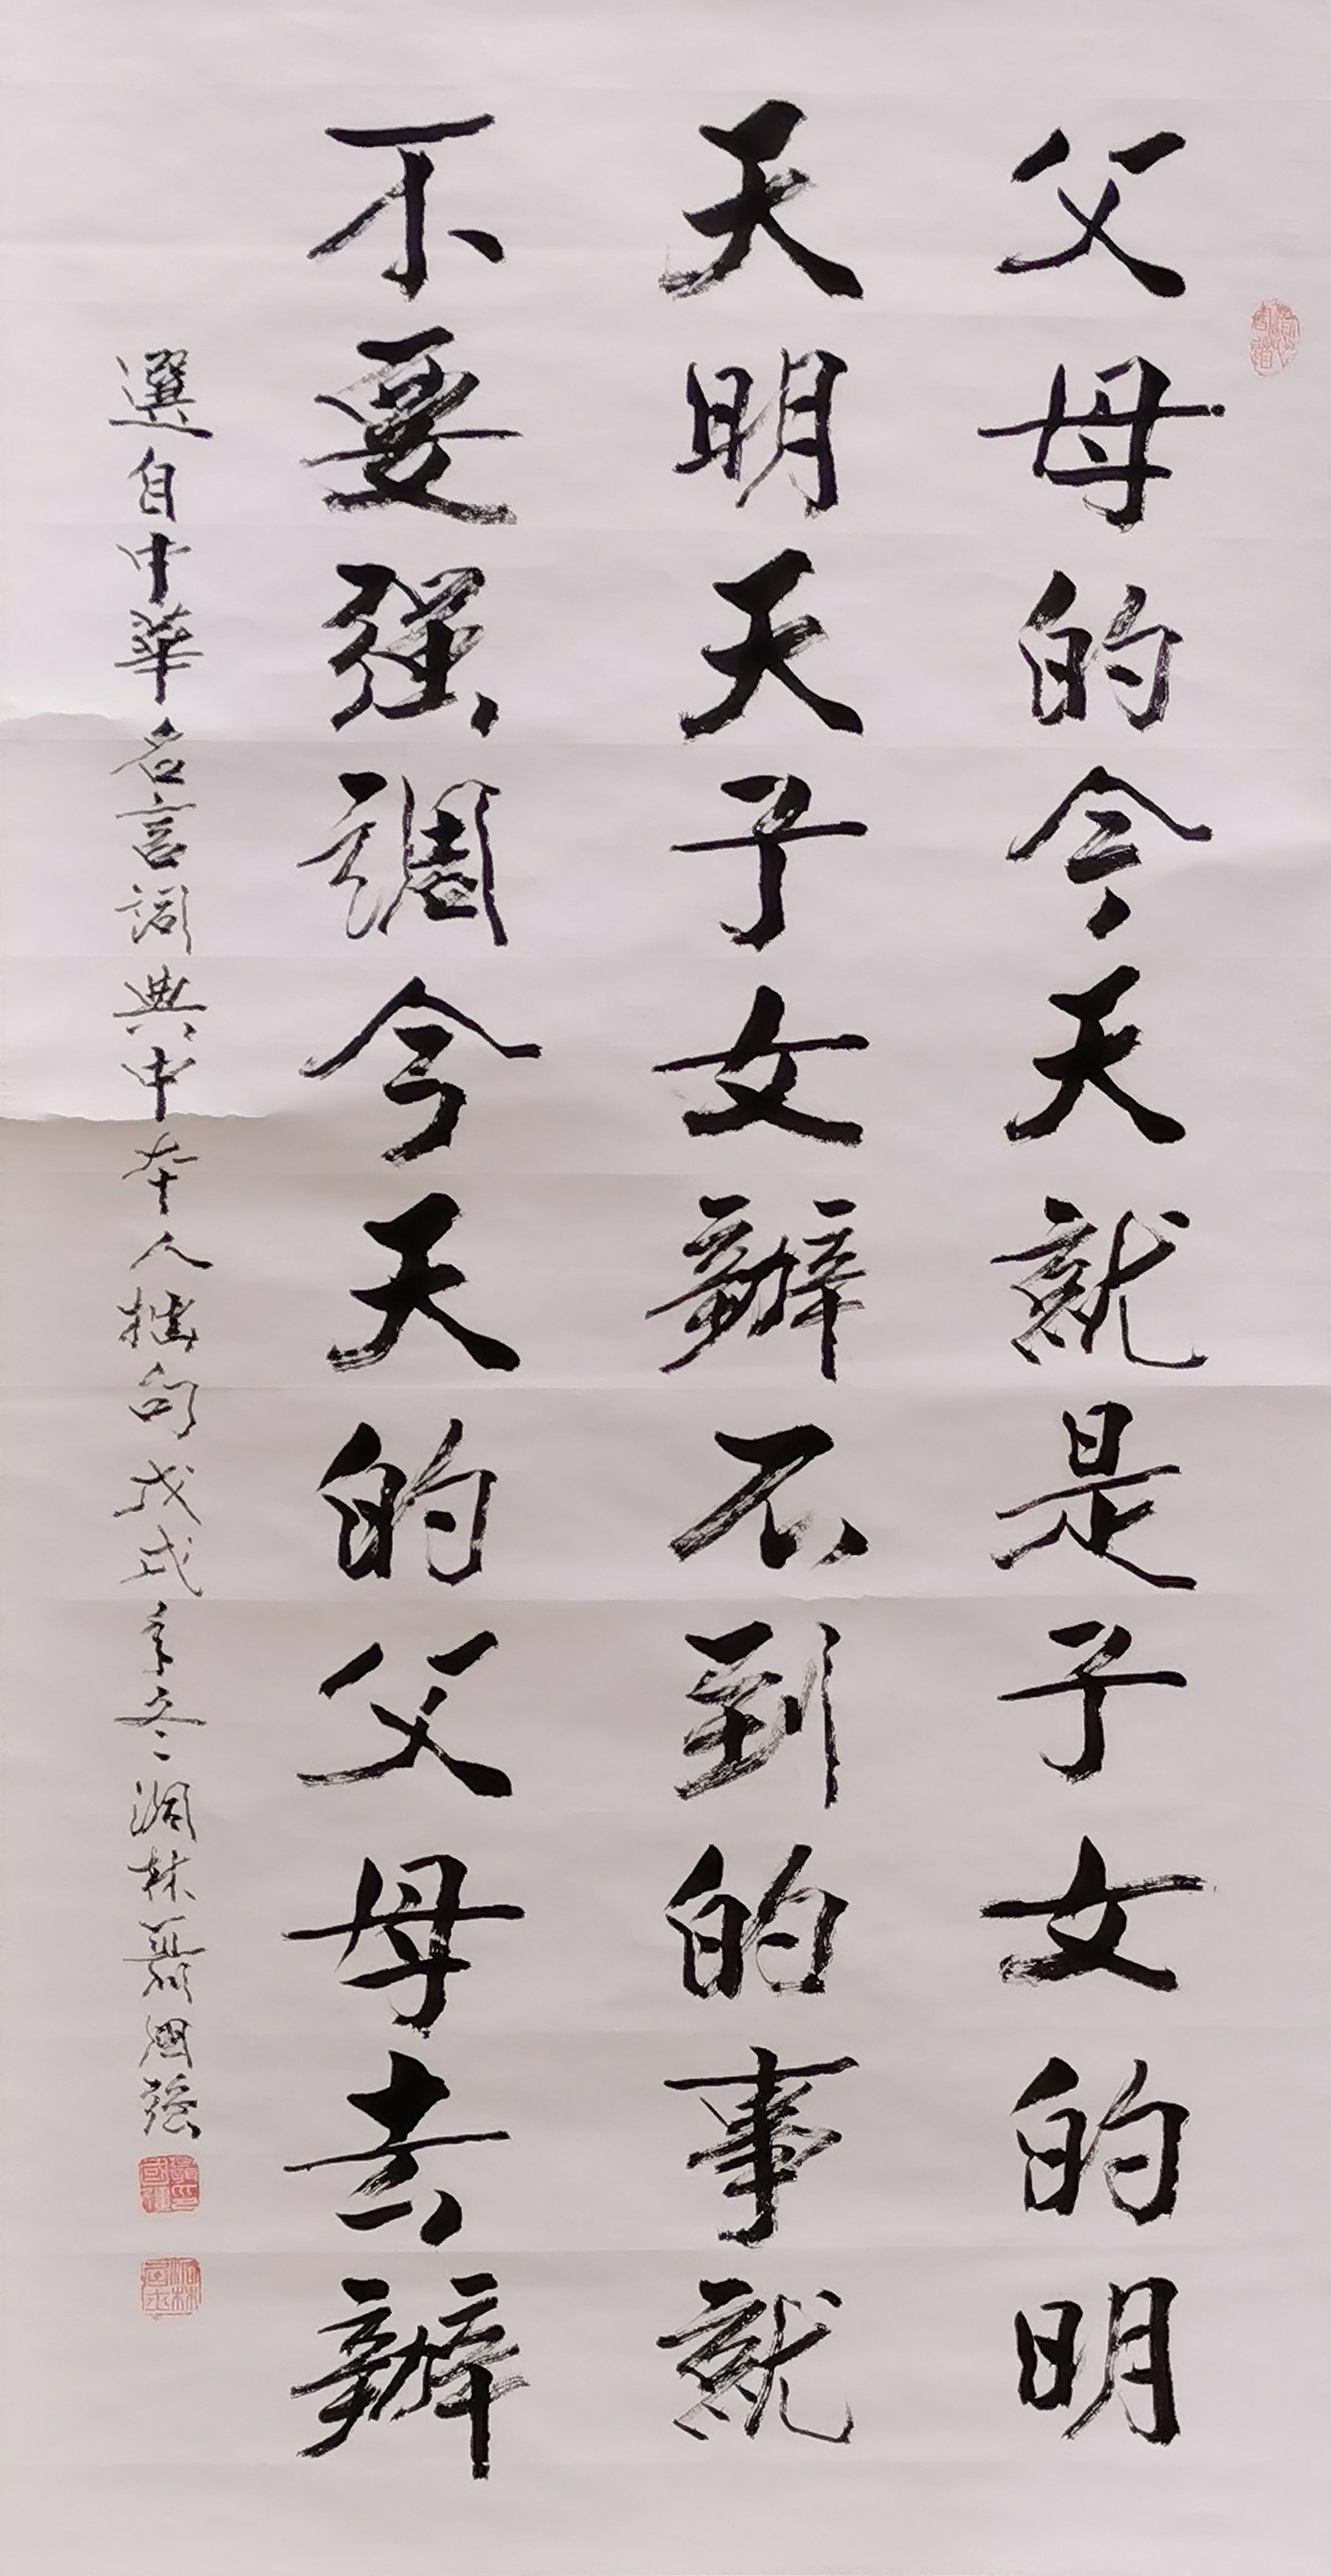 父母的今天就是子女的明
天明天子女辦不到的事就
不要强調今天的父母去辦
選自中華名言詞典中本人拙句戊戌年冬澗林聶國强